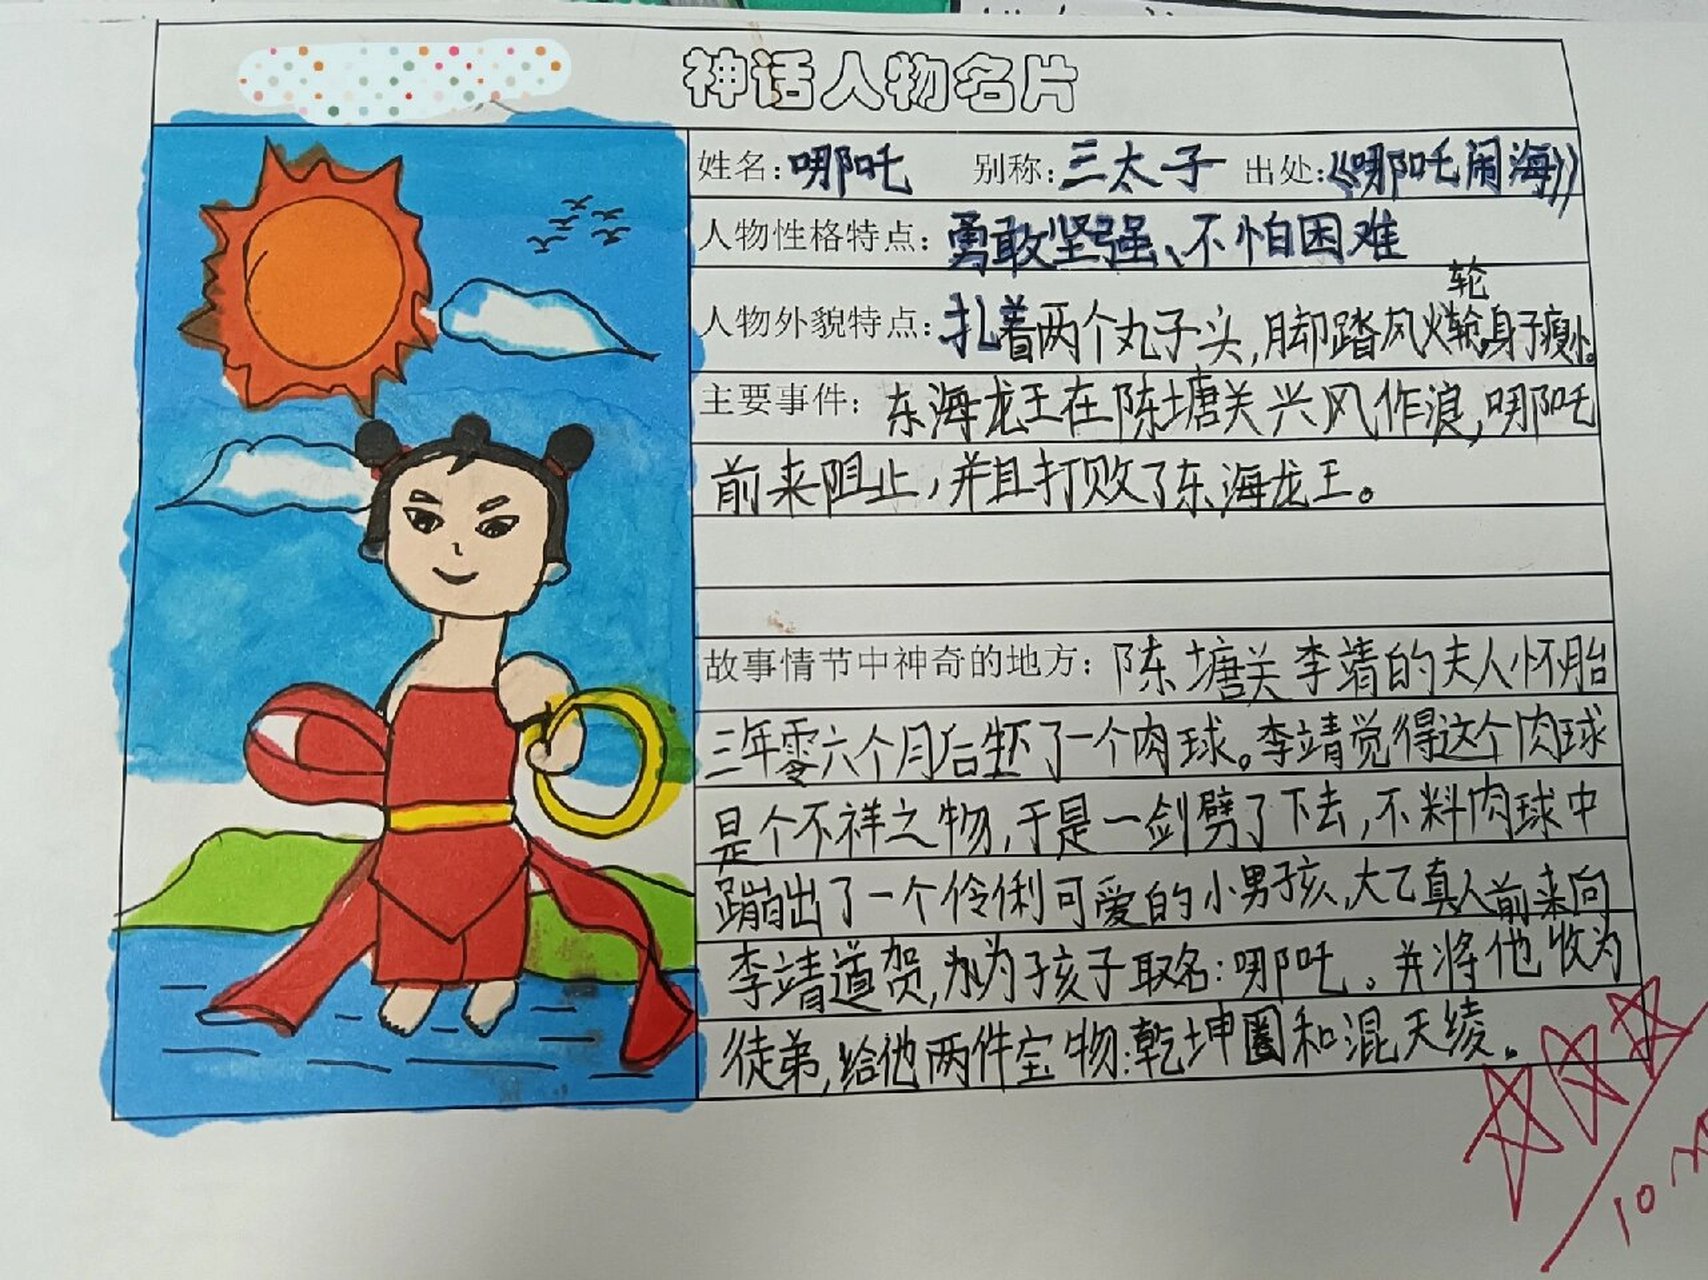 神话人物名片
姓名: 哪吒 别称: 三太子 出处:《哪吒闹海》
人物性格特点: 勇敢坚强、不怕困难
轮
人物外貌特点: 扎着两个丸子头,脚踏风火轮,身子瘦小。
主要事件: 东海龙王在陈塘关兴风作浪,哪吒
前来阻止,并且打败了东海龙王。
故事情节中神奇的地方: 陈塘关李靖的夫人怀胎
三年零六个月后生下了一个肉球。李靖觉得这个肉球
是个不祥之物,于是一剑劈了下去,不料肉球中
蹦出了一个伶俐可爱的小男孩,太乙真人前来向
李靖道贺,为孩子取名:哪吒。并将他收为
徒弟,给他两件宝物:乾坤圈和混天绫。